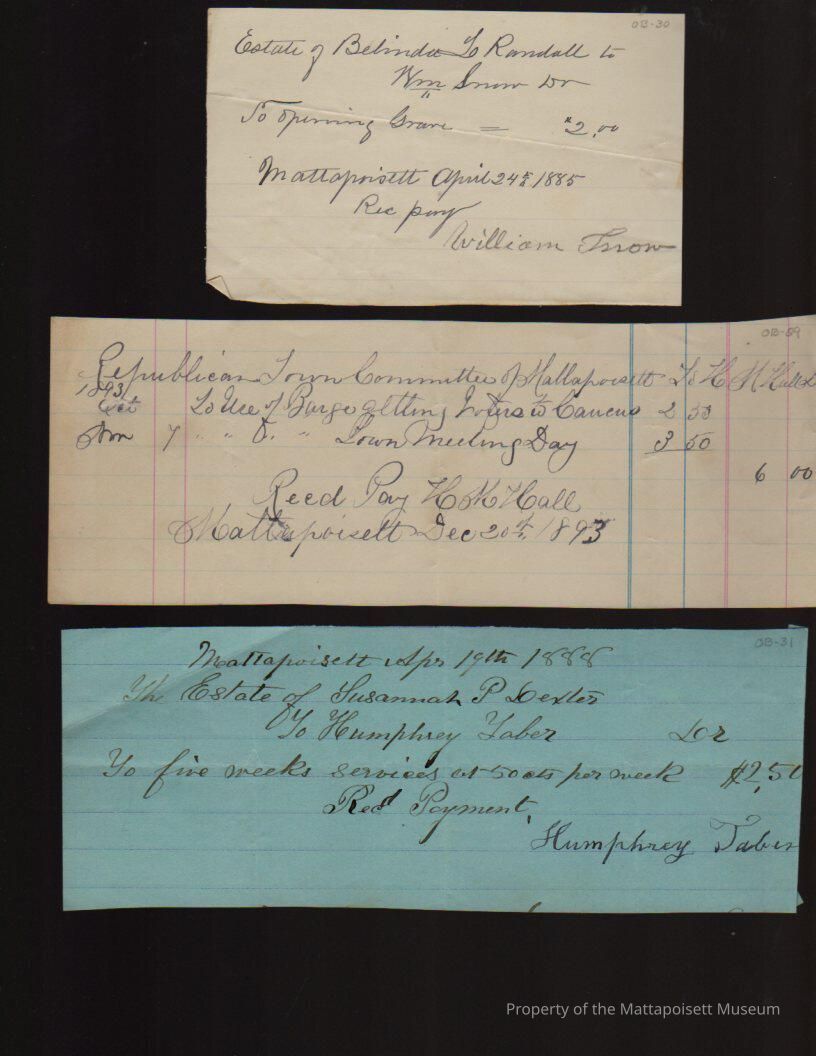 OB-30
Estate of Belinda L Randall to
Wm Snow Dr
To opening Grave = "2.00
Mattapoisett April 24th 1885
Rec pay
William Snow
OB-29
Republican Town Committee of Mattapoisett To H K Hall D
1893
Oct To Use of Barge getting Voters to Caucus 2 50
7 " " D. " Town Meeting Day 3 50
6 00
Recd Pay H K Hall
Mattapoisett Dec 20th, 1893
OB-31
Mattapoisett Apr 19th 1888
The Estate of Susannah P Dexter
To Humphrey Taber Dr
To five weeks services at 50 cts per week $2,50
Recd Payment,
Humphrey Taber
Property of the Mattapoisett Museum